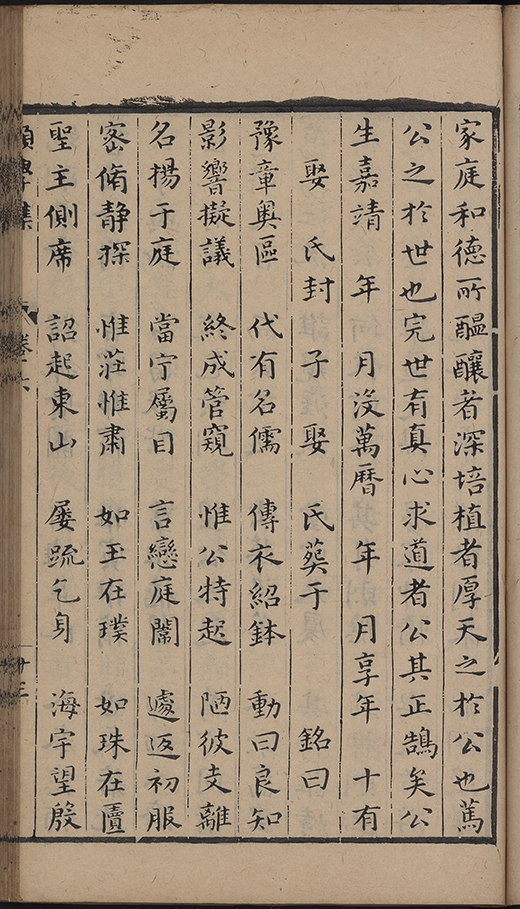 家庭和德所醞釀者深培植者厚天之於公也篤
公之於世也完世有真心求道者公其正鵠矣公
生嘉靖 年 月沒萬曆 年 月享年 十有
娶 氏封 子 娶 氏葬于 銘曰
豫章奧區 代有名儒 傳衣紹鉢 動曰良知
影響擬議 終成管窺 惟公特起 陋彼支離
名揚于庭 當宁屬目 言戀庭闈 遽返初服
密脩静探 惟莊惟肅 如玉在璞 如珠在匵
聖主側席 詔起東山 屢疏乞身 海宇望殷
願學集 卷之六